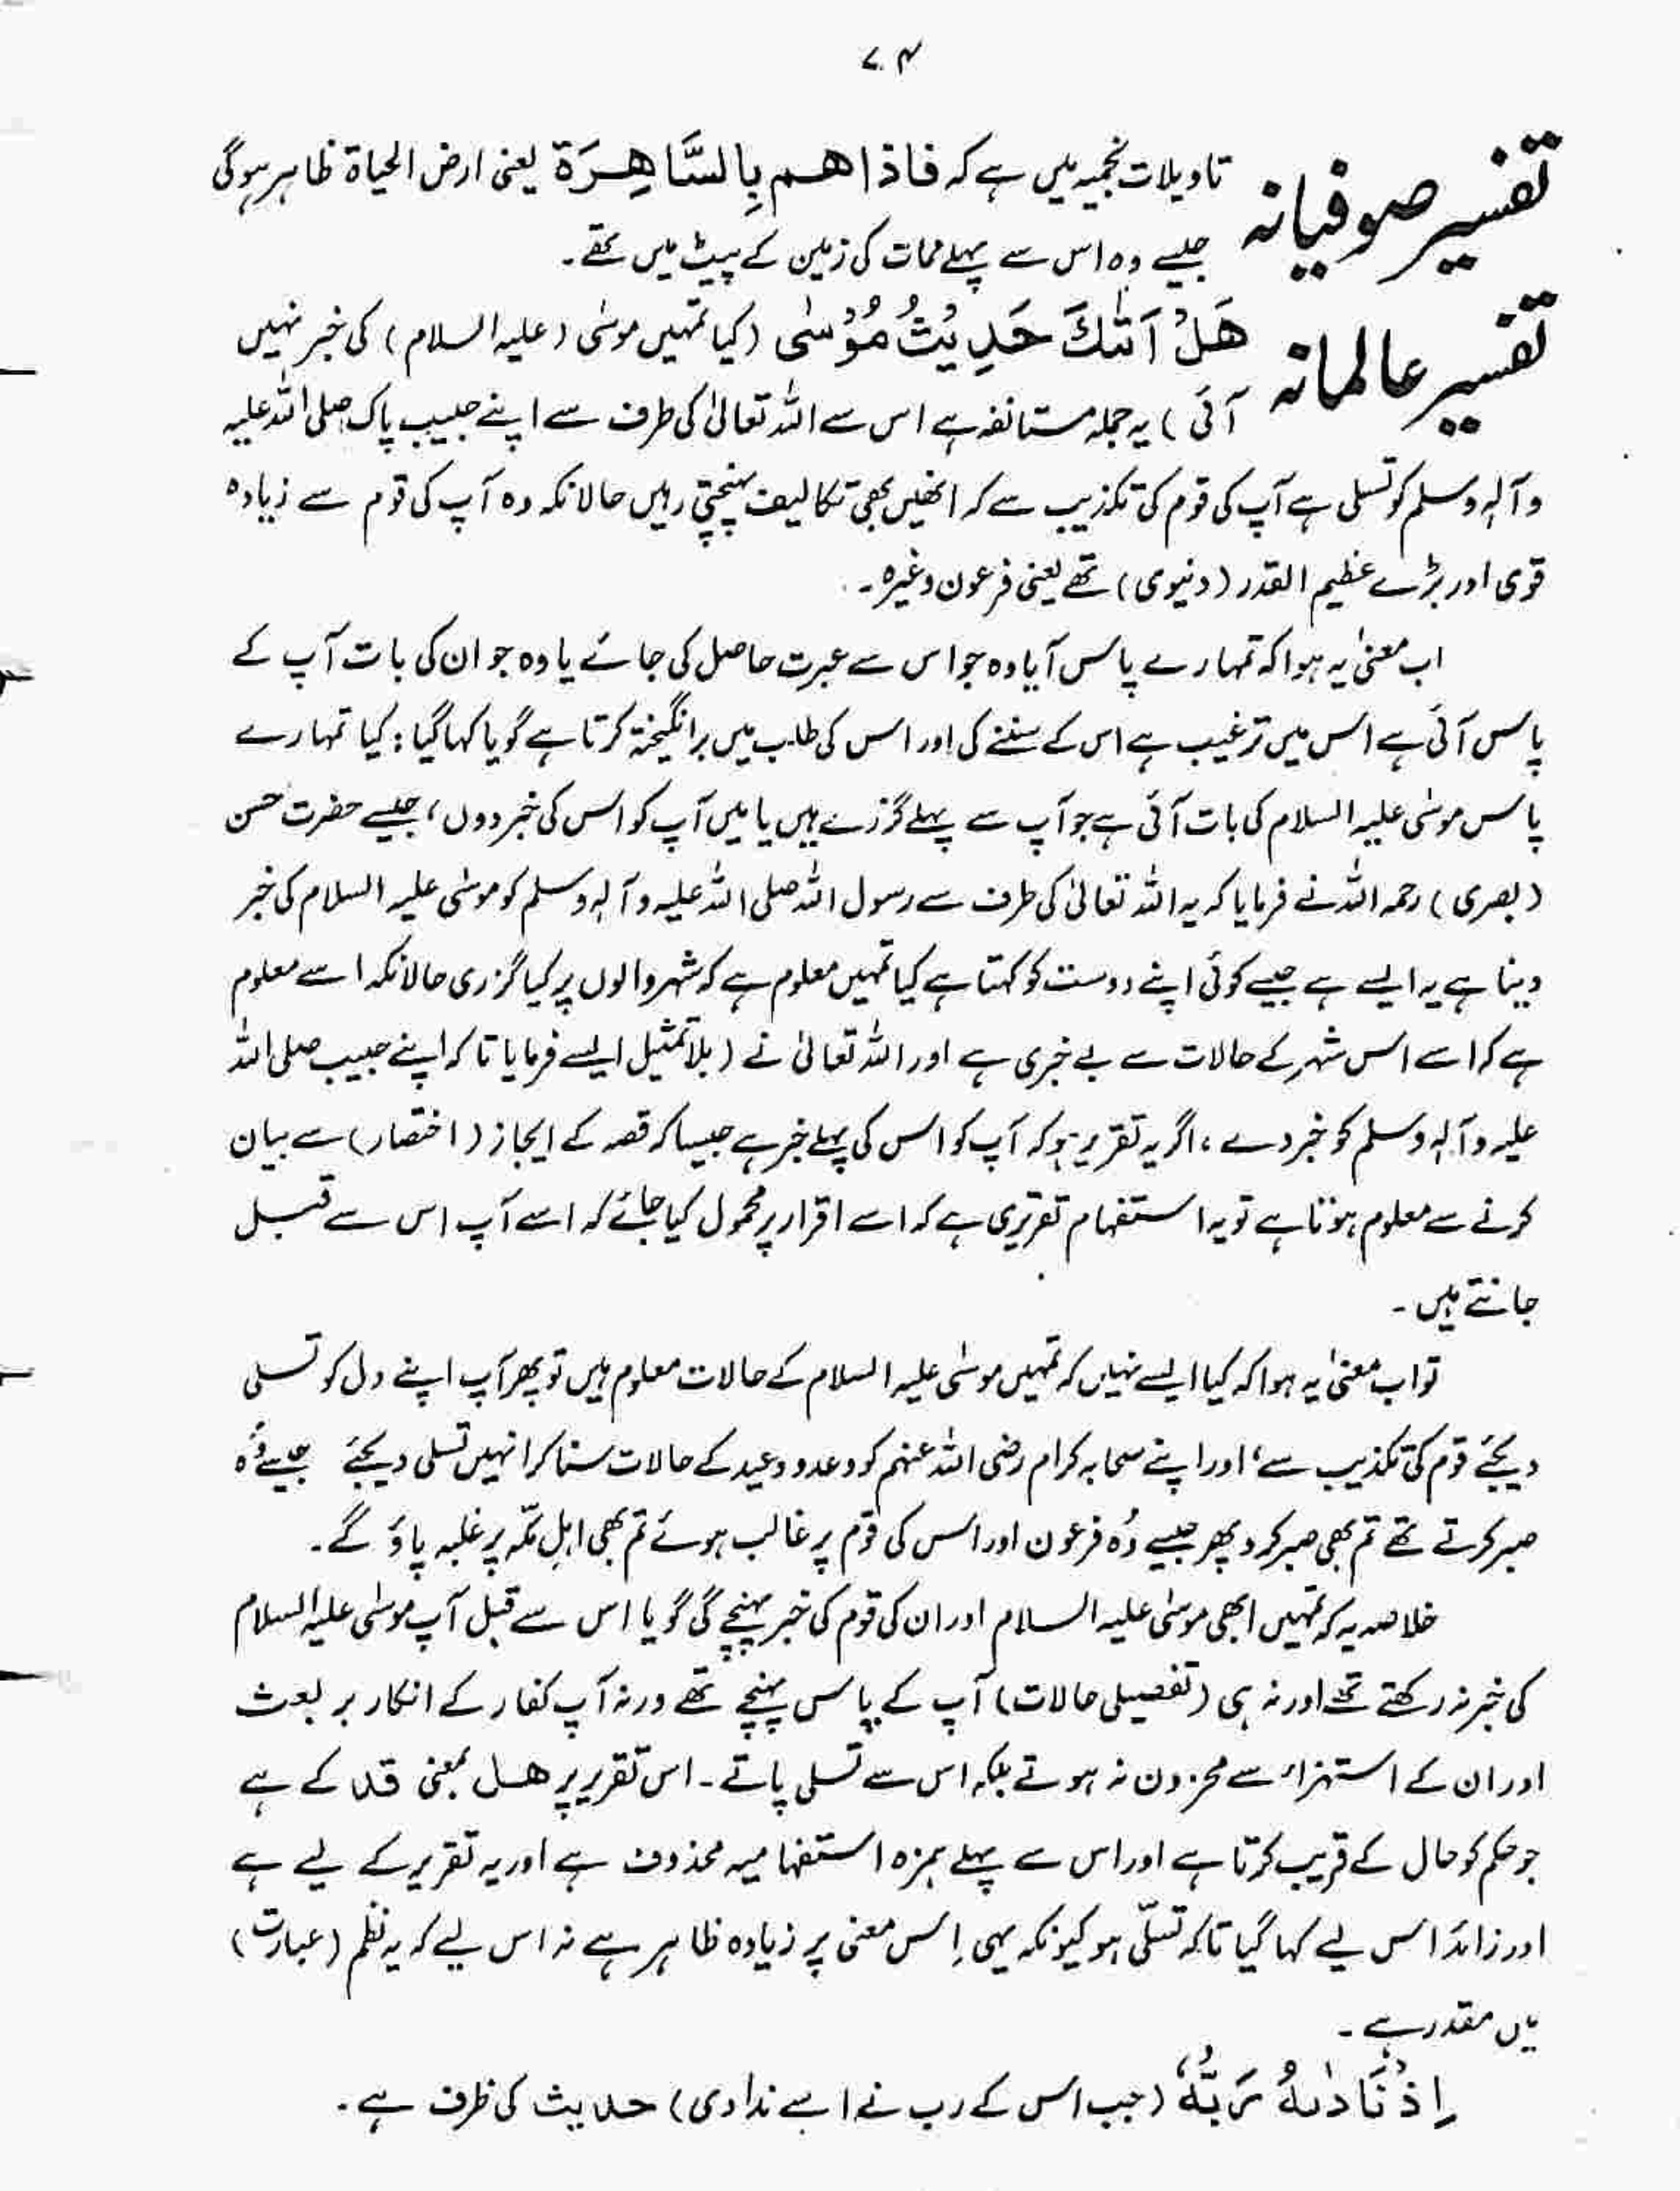 ۷۴
تفسیر صوفیانہ تاویلات نجمیہ میں ہے کہ فاذا هم بِالسَّاهِرَة یعنی ارض الحیاۃ ظاہر ہوگی
جیسے وہ اس سے پہلے ممات کی زمین کے پیٹ میں تھے۔
تفسیر عالمانہ هَلْ اَتٰىكَ حَدِيْثُ مُوْسٰى (کیا تمہیں موسٰی (علیہ السلام) کی خبر نہیں
آئی) یہ جملہ مستانفہ ہے اس سے اللہ تعالیٰ کی طرف سے اپنے حبیب پاک صلی اللہ علیہ
وآلہٖ وسلم کو تسلی ہے آپ کی قوم کی تکذیب سے کہ انھیں بھی تکالیف پہنچتی رہیں حالانکہ وہ آپ کی قوم سے زیادہ
قوی اور بڑے عظیم القدر (دنیوی) تھے یعنی فرعون وغیرہ۔
اب معنیٰ یہ ہوا کہ تمہارے پاس آیا وہ جو اس سے عبرت حاصل کی جائے یا وہ جو ان کی بات آپ کے
پاس آئی ہے اس میں ترغیب ہے اس کے سننے کی اور اس کی طلب میں برانگیختہ کرتا ہے گویا کہا گیا: کیا تمہارے
پاس موسٰی علیہ السلام کی بات آئی ہے جو آپ سے پہلے گزرے ہیں یا میں آپ کو اس کی خبر دوں، جیسے حضرت حسن
(بصری) رحمہ اللہ نے فرمایا کہ یہ اللہ تعالیٰ کی طرف سے رسول اللہ صلی اللہ علیہ وآلہٖ وسلم کو موسٰی علیہ السلام کی خبر
دینا ہے یہ ایسے ہے جیسے کوئی اپنے دوست کو کہتا ہے کیا تمہیں معلوم ہے کہ شہر والوں پر کیا گزری حالانکہ اسے معلوم
ہے کہ اسے اس شہر کے حالات سے بے خبری ہے اور اللہ تعالیٰ نے (بلا تمثیل ایسے فرمایا تاکہ اپنے حبیب صلی اللہ
علیہ وآلہٖ وسلم کو خبر دے، اگر یہ تقریر ہو کہ آپ کو اس کی پہلے خبر ہے جیسا کہ قصہ کے ایجاز (اختصار) سے بیان
کرنے سے معلوم ہوتا ہے تو یہ استفہام تقریری ہے کہ اسے اقرار پر محمول کیا جائے کہ اسے آپ اس سے قبل
جانتے ہیں۔
تو اب معنیٰ یہ ہوا کہ کیا ایسے نہیں کہ تمہیں موسٰی علیہ السلام کے حالات معلوم ہیں تو پھر آپ اپنے دل کو تسلی
دیجئے قوم کی تکذیب سے، اور اپنے صحابہ کرام رضی اللہ عنہم کو وعدہ و وعید کے حالات سنا کر انہیں تسلی دیجئے جیسے وُہ
صبر کرتے تھے تم بھی صبر کرو پھر جیسے وُہ فرعون اور اس کی قوم پر غالب ہوئے تم بھی اہلِ مکّہ پر غلبہ پاؤ گے۔
خلاصہ یہ کہ تمہیں ابھی موسٰی علیہ السلام اور ان کی قوم کی خبر پہنچے گی گویا اس سے قبل آپ موسٰی علیہ السلام
کی خبر نہ رکھتے تھے اور نہ ہی (تفصیلی حالات) آپ کے پاس پہنچے تھے ورنہ آپ کفار کے انکار بر بعث
اور ان کے استہزاء سے محزون نہ ہوتے بلکہ اس سے تسلی پاتے۔ اس تقریر پر ھل بمعنی قد کے ہے
جو حکم کو حال کے قریب کرتا ہے اور اس سے پہلے ہمزہ استفہامیہ محذوف ہے اور یہ تقریر کے لیے ہے
اور زائد اس لیے کہا گیا تاکہ تسلّی ہو کیونکہ یہی اِس معنی پر زیادہ ظاہر ہے نہ اس لیے کہ یہ نظم (عبارت)
یں مقدر ہے۔
اِذْ نَادٰىهُ رَبُّهٗ (جب اس کے رب نے اسے ندا دی) حدیث کی ظرف ہے۔